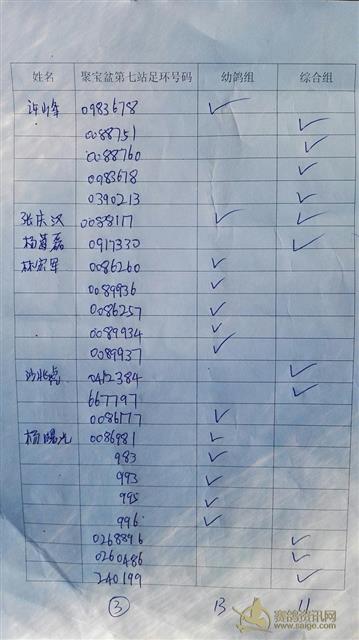 姓名 聚宝盆第七站足环号码 幼鸽组 综合组
0983678 ✓
0088751 ✓
0088760 ✓
0983678 ✓
0390213 ✓
张庆汉 0088117 ✓ ✓
0917330 ✓
林宏军 0086260 ✓
0089936 ✓
0086257 ✓
0089934 ✓
0089937 ✓
0412384 ✓
667797 ✓
0086177 ✓
杨曙光 0086981 ✓
983 ✓
993 ✓
995 ✓
996 ✓
0268896 ✓
0260486 ✓
240199 ✓
③ 13 11
赛鸽资讯网
www.saige.com